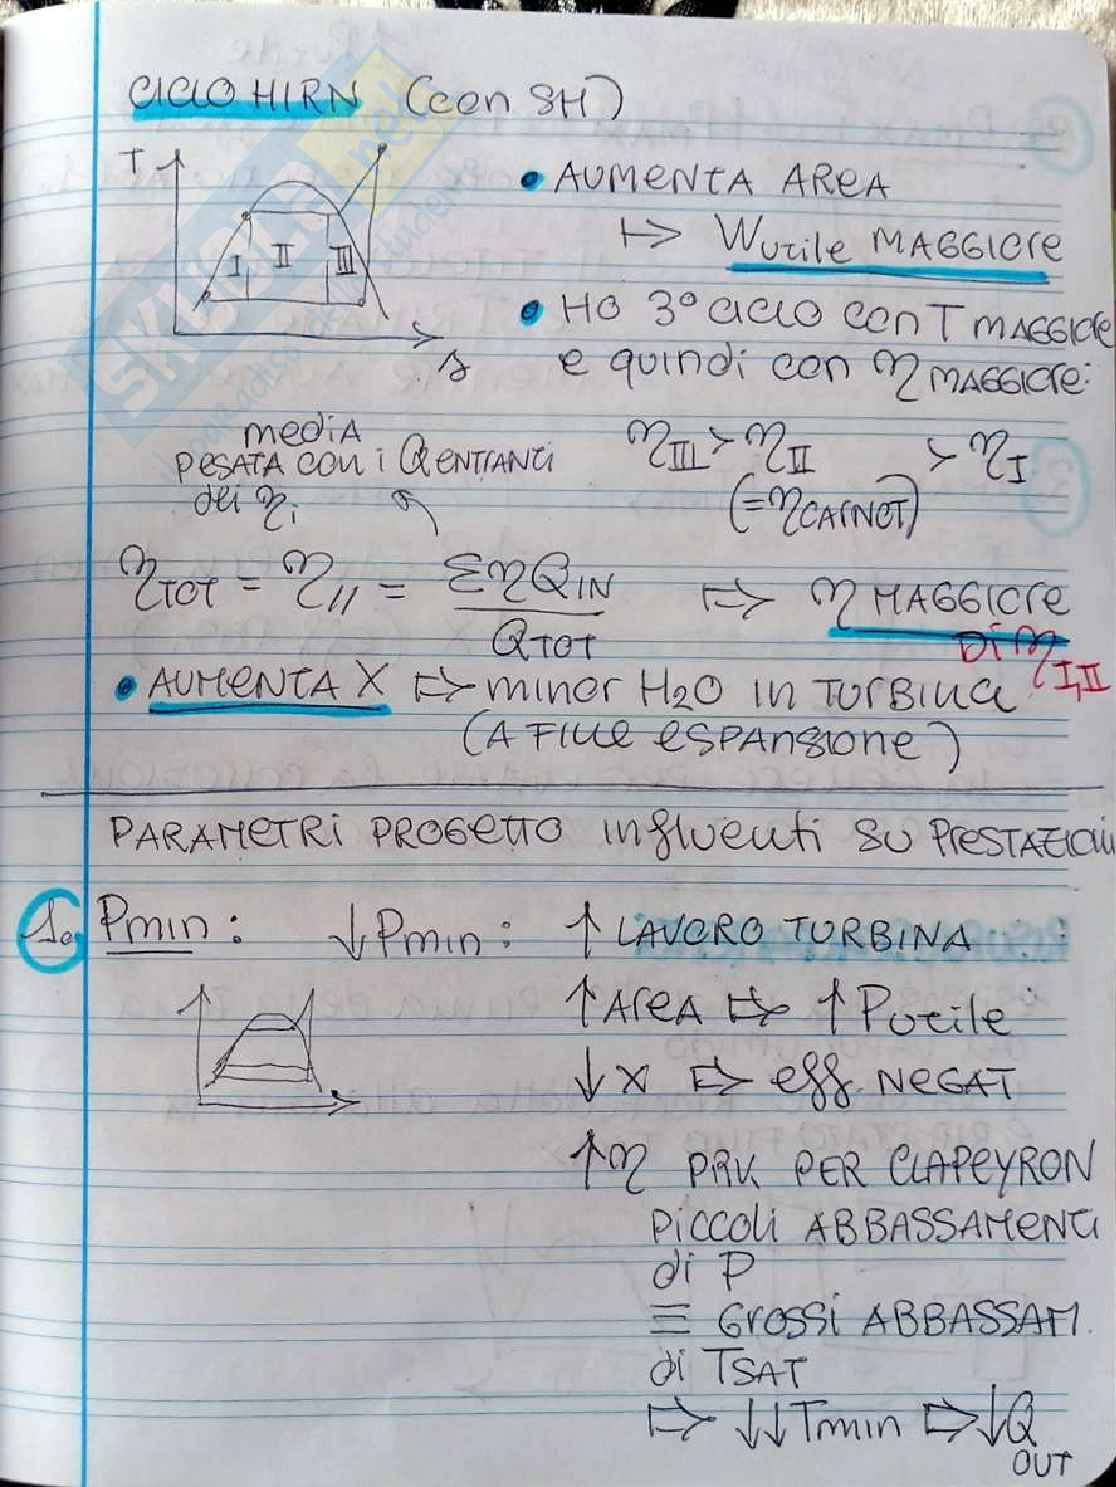 CICLO HIRN (con SH)
T
I II III
s
• AUMENTA AREA
↦ Wutile MAGGIORE
• HO 3° CICLO CON T MAGGIORE
e quindi con η MAGGIORE:
ηIII > ηII > ηI
(=ηCARNOT)
media
pesata con i Q entranti
dei ηi
ηTOT = η// = ΣηQIN / QTOT ⇨ η MAGGIORE
di ηI,II
• AUMENTA X ⇨ minor H2O in TURBINA
(A FINE ESPANSIONE)
PARAMETRI PROGETTO influenti su PRESTAZIONI
1. Pmin: ↓Pmin: ↑ LAVORO TURBINA
↑ AREA ⇨ ↑ Putile
↓ X ⇨ eff. NEGAT
↑η PRK PER CLAPEYRON
PICCOLI ABBASSAMENTI
di P
≡ GROSSI ABBASSAM.
di TSAT
⇨ ↓↓Tmin ⇨ ↓Q
OUT
SKUOLA.net